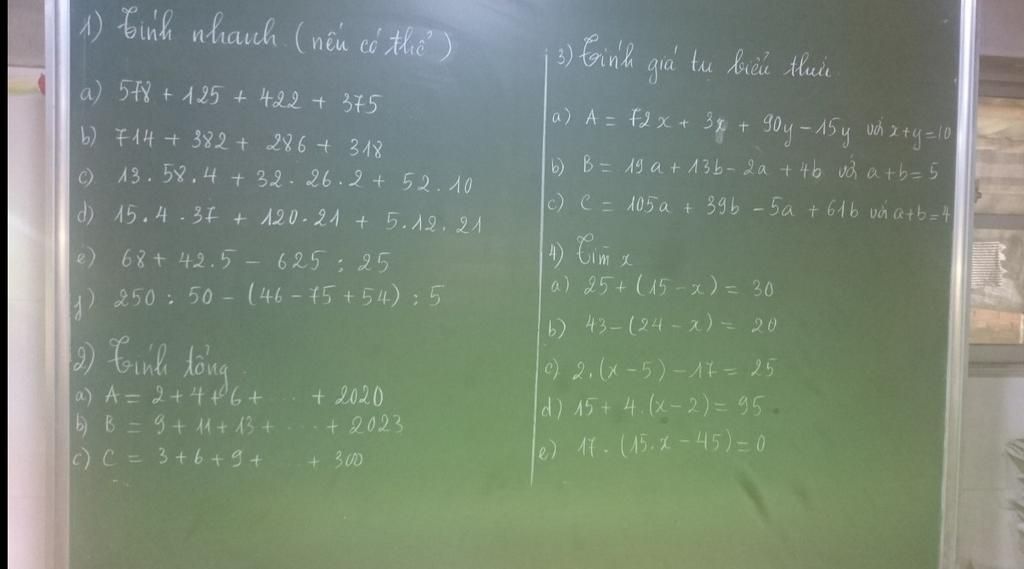 1) Tính nhanh (nếu có thể)
a) 578 + 125 + 422 + 375
b) 714 + 382 + 286 + 318
c) 13 . 58 . 4 + 32 . 26 . 2 + 52 . 10
d) 15 . 4 . 37 + 120 . 21 + 5 . 12 . 21
e) 68 + 42 . 5 - 625 : 25
f) 250 : 50 - (46 - 75 + 54) : 5
2) Tính tổng
a) A = 2 + 4 + 6 + ... + 2020
b) B = 9 + 11 + 13 + ... + 2023
c) C = 3 + 6 + 9 + ... + 300
3) Tính giá trị biểu thức
a) A = 72x + 3x + 90y - 15y với x+y=10
b) B = 19a + 13b - 2a + 4b với a+b=5
c) C = 105a + 39b - 5a + 61b với a+b=4
4) Tìm x
a) 25 + (15 - x) = 30
b) 43 - (24 - x) = 20
c) 2.(x - 5) - 17 = 25
d) 15 + 4.(x - 2) = 95
e) 17 . (15.x - 45) = 0